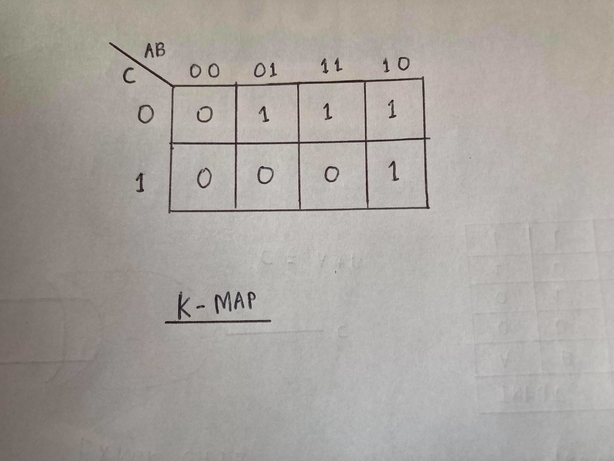 AB
C 00 01 11 10
0 0 1 1 1
1 0 0 0 1
K-MAP